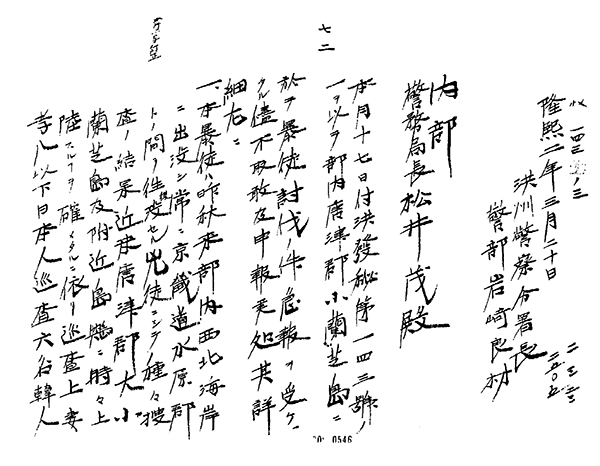 収 一四三ノ三
隆熙二年三月二十日
洪州警察分署長
警部岩崎良材
内部
警務局長松井茂殿
本月十七日付洪發秘第一四三號ノ
一ヲ以テ部内唐津郡小蘭芝島ニ
於テ暴徒討伐ノ件急報ヲ受ケ
タル儘不取敢及申報置処其詳
細左ニ
一、本暴徒ハ昨秋来部内西北海岸
ニ出没シ常ニ京畿道水原郡
トノ間ヲ往復セル兇徒ニシテ種々捜
査ノ結果近来唐津郡大小
蘭芝島及附近島嶼ニ時々上
陸スルヲ確メタルニ依リ巡査上妻
孝八以下日本人巡査六名韓人
七二
0546